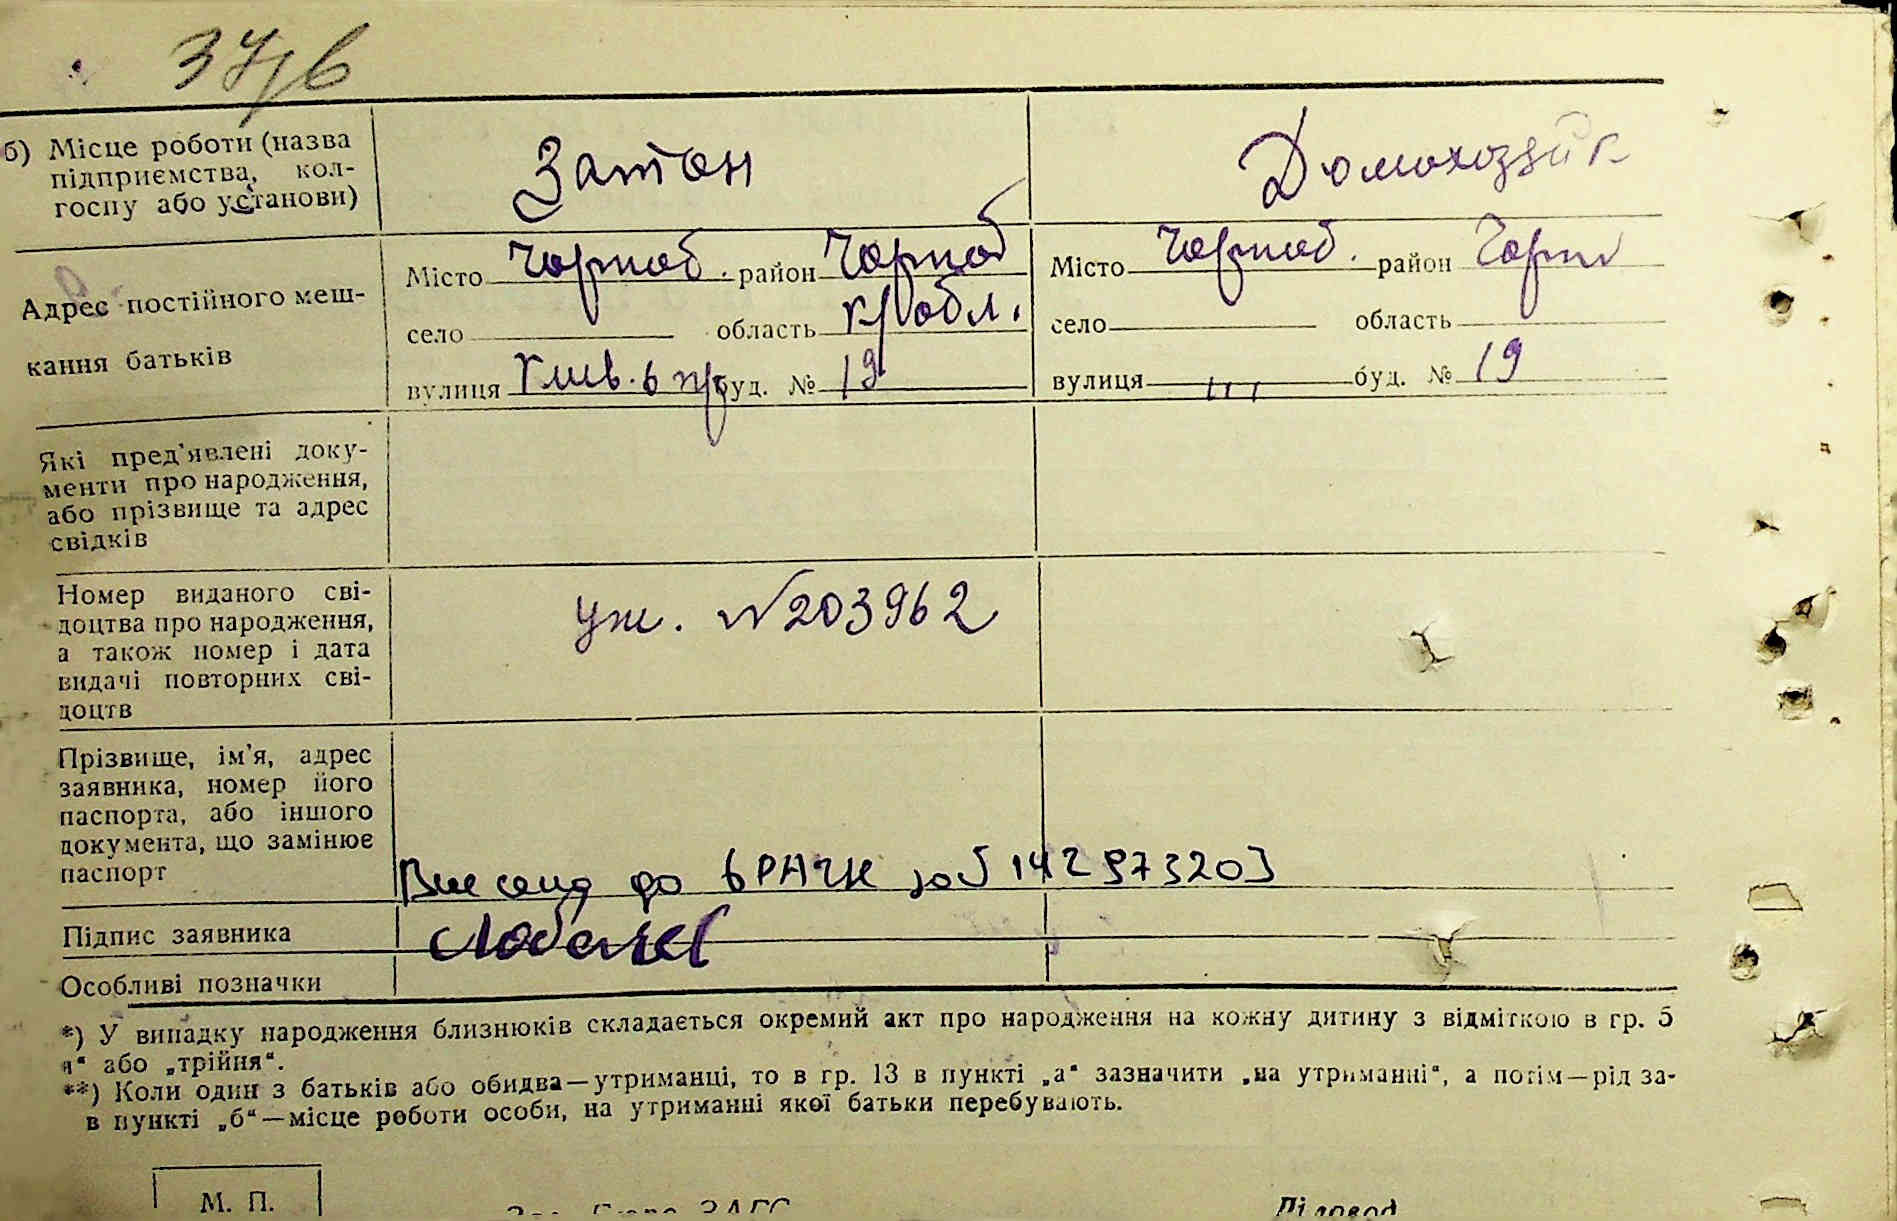 б) Місце роботи (назва
підприємства, кол-
госпу або установи)
Затон
Домохозяйк
Адрес постійного меш-
кання батьків
Місто Чорноб. район Чорноб
село область К/обл.
вулиця буд. № 19
Місто Чорноб. район Чорн
село область
вулиця буд. № 19
Які пред'явлені доку-
менти про народження,
або прізвище та адрес
свідків
Номер виданого сві-
доцтва про народження,
а також номер і дата
видачі повторних сві-
доцтв
№203962
Прізвище, ім'я, адрес
заявника, номер його
паспорта, або іншого
документа, що замінює
паспорт
до
Підпис заявника
Особливі позначки
*) У випадку народження близнюків складається окремий акт про народження на кожну дитину з відміткою в гр. 5
я“ або „трійня“.
**) Коли один з батьків або обидва—утриманці, то в гр. 13 в пункті „а“ зазначити „на утриманні“, а потім—рід за-
в пункті „б“—місце роботи особи, на утриманні якої батьки перебувають.
М. П.
Діловод